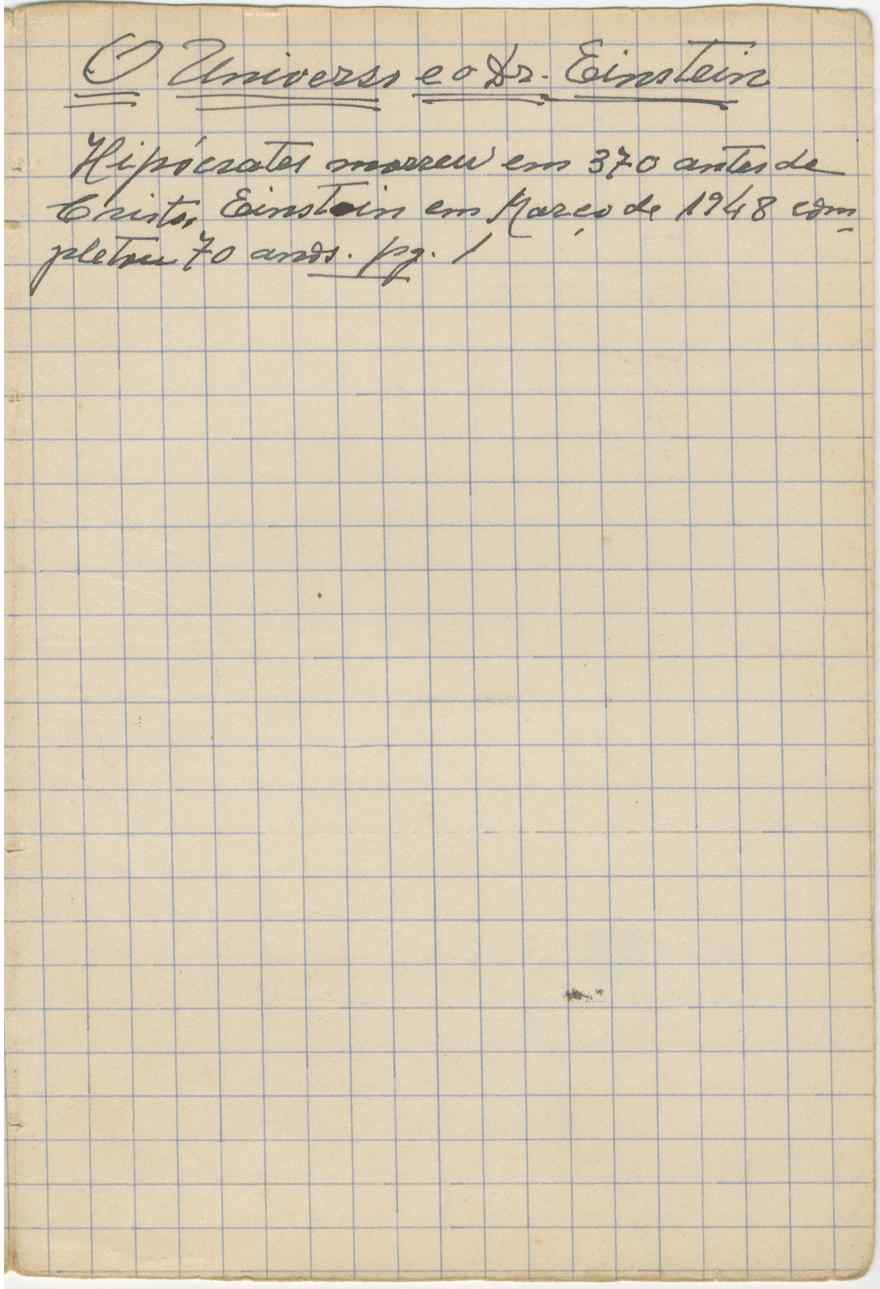 O Universo e o Dr. Einstein
Hipócrates morreu em 370 antes de
Cristo, Einstein em Março de 1948 com
pletou 70 anos. pg. 1